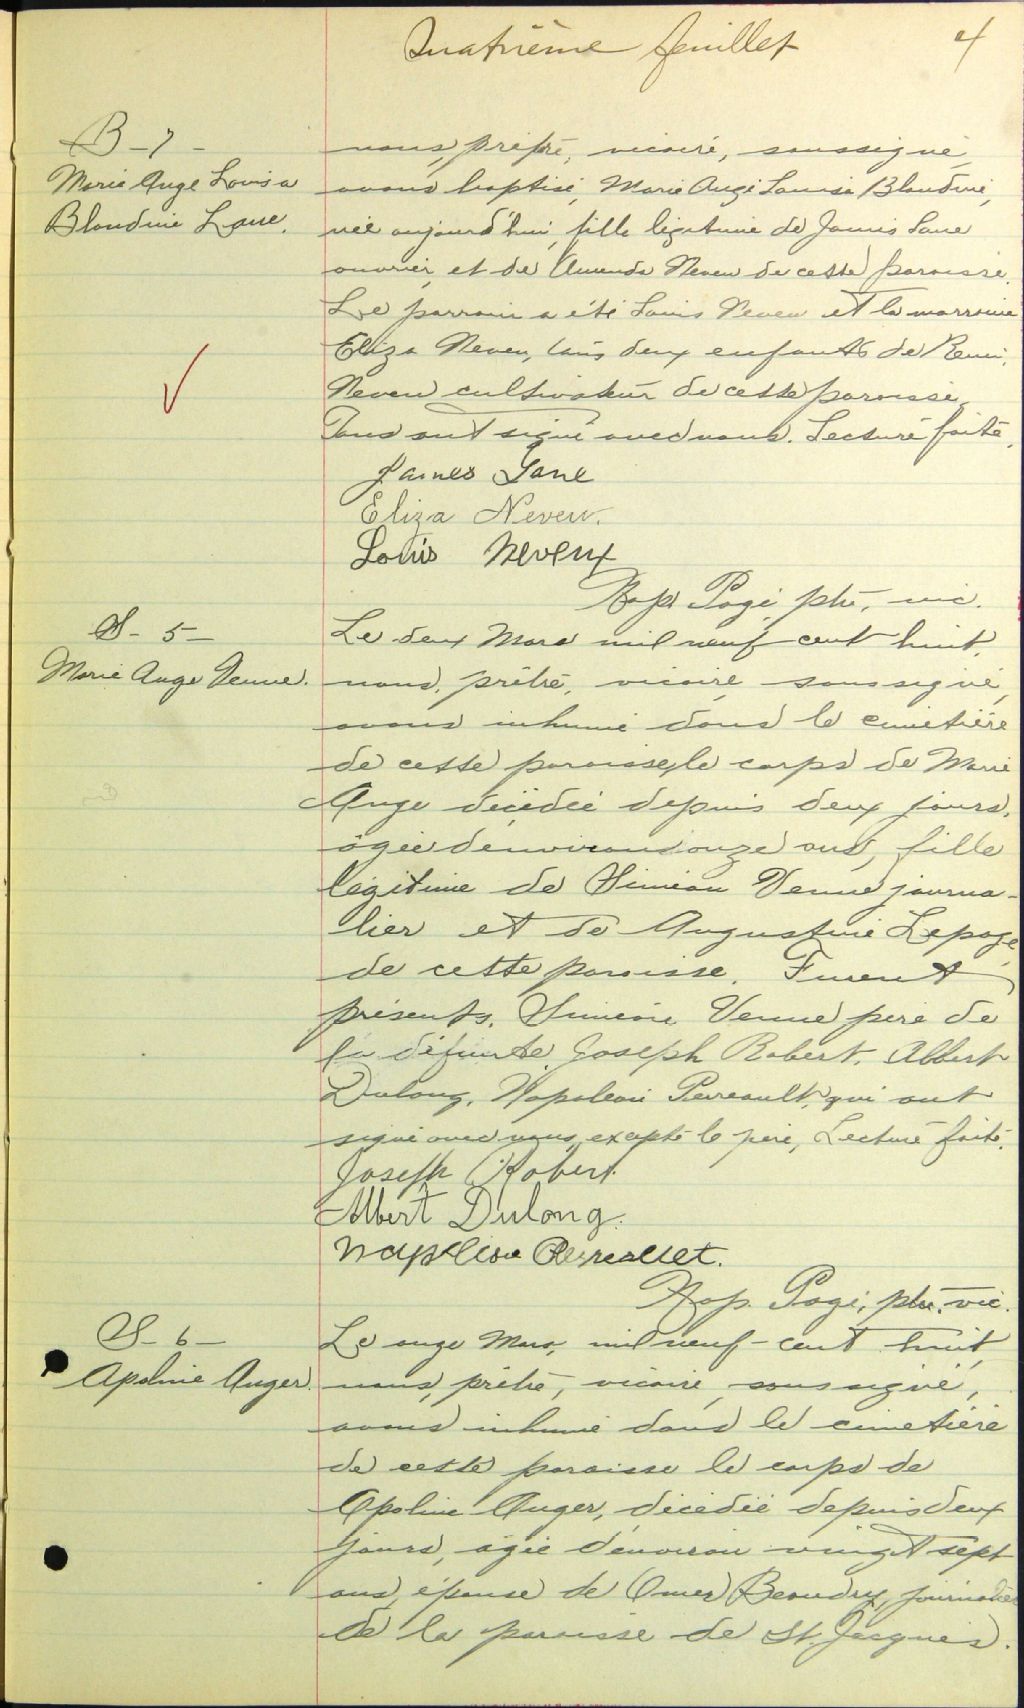 Quatrième feuillet 4
B-7-
Marie Ange Louisa
Blandine Lane.
nous, prêtre, vicaire, soussigné,
avons baptisé, Marie Ange Louisa Blandine,
née aujourd'hui, fille légitime de James Lane
ouvrier, et de Amanda Neveu de cette paroisse.
Le parrain a été Louis Neveu et la marraine
Eliza Neveu, tous deux enfants de Remi
Neveu cultivateur de cette paroisse.
Tous ont signé avec nous. Lecture faite.
James Lane
Eliza Neveu.
Louis Neveux
Nap. Pagé, ptre, vic.
S-5-
Marie Ange Venne.
Le deux Mars mil neuf cent huit,
nous, prêtre, vicaire, soussigné,
avons inhumé dans le cimetière
de cette paroisse, le corps de Marie
Ange décédée depuis deux jours,
âgée d'environ onze ans, fille
légitime de Siméon Venne journa-
lier et de Augustine Lepage,
de cette paroisse. Furent
présents, Siméon Venne père de
la défunte, Joseph Robert, Albert
Dulong, Napoléon Perreault, qui ont
signé avec nous, excepté le père, Lecture faite.
Joseph Robert.
Albert Dulong.
Napoléon Perreault.
Nap. Pagé, ptre. vic.
S-6-
Apoline Auger.
Le onze Mars, mil neuf-cent huit,
nous, prêtre, vicaire, soussigné,
avons inhumé dans le cimetière
de cette paroisse le corps de
Apoline Auger, décédée depuis deux
jours, âgée d'environ vingt sept
ans, épouse de Omer Beaudry, journalier
de la paroisse de St. Jacques.